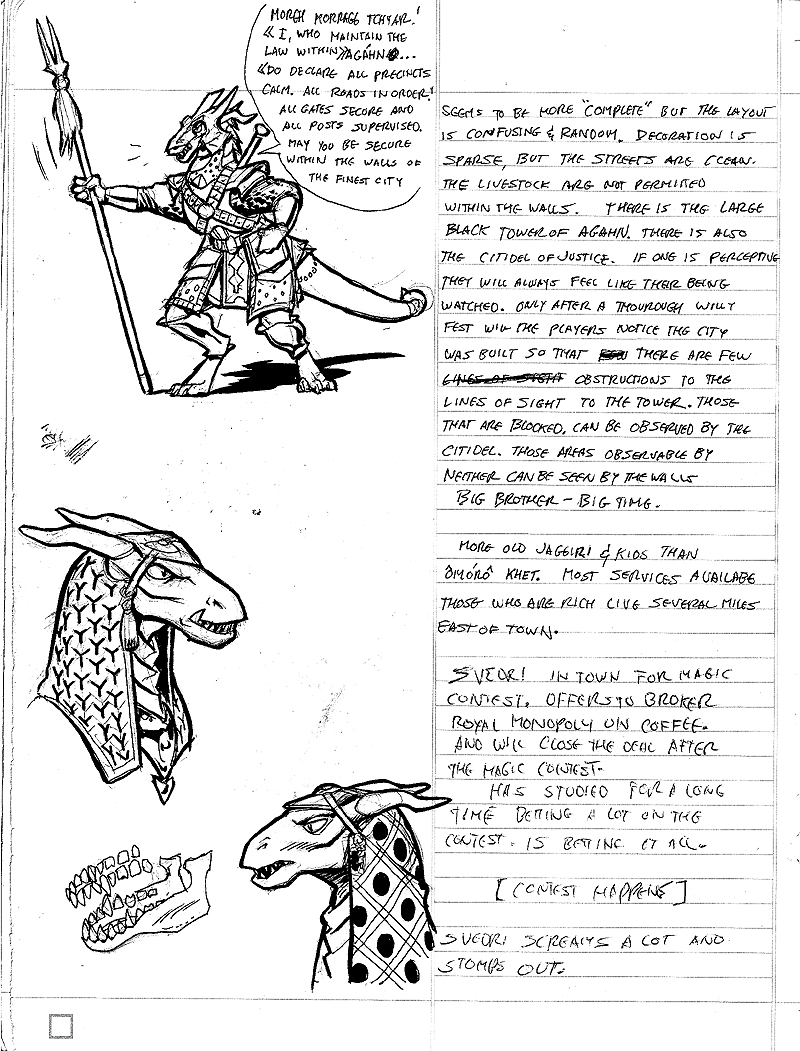 MORGH MORRAGG TCHYAR!
«I, WHO MAINTAIN THE
LAW WITHIN» AGÁHN...
«DO DECLARE ALL PRECINCTS
CALM. ALL ROADS IN ORDER!
ALL GATES SECURE AND
ALL POSTS SUPERVISED.
MAY YOU BE SECURE
WITHIN THE WALLS OF
THE FINEST CITY
SEEMS TO BE MORE "COMPLETE" BUT THE LAYOUT
IS CONFUSING & RANDOM. DECORATION IS
SPARSE, BUT THE STREETS ARE CLEAN.
THE LIVESTOCK ARE NOT PERMITED
WITHIN THE WALLS. THERE IS THE LARGE
BLACK TOWER OF AGAHN. THERE IS ALSO
THE CITIDEL OF JUSTICE. IF ONE IS PERCEPTIVE
THEY WILL ALWAYS FEEL LIKE THEIR BEING
WATCHED. ONLY AFTER A THOUROUGH WILLY
FEST WILL THE PLAYERS NOTICE THE CITY
WAS BUILT SO THAT THERE ARE FEW
LINES OF SIGHT OBSTRUCTIONS TO THE
LINES OF SIGHT TO THE TOWER. THOSE
THAT ARE BLOCKED, CAN BE OBSERVED BY THE
CITIDEL. THOSE AREAS OBSERVABLE BY
NEITHER CAN BE SEEN BY THE WALLS
BIG BROTHER - BIG TIME.
MORE OLD JAGGIRI & KIDS THAN
KHET. MOST SERVICES AVAILABE
THOSE WHO ARE RICH LIVE SEVERAL MILES
EAST OF TOWN.
SVEDRI IN TOWN FOR MAGIC
CONTEST. OFFERS TO BROKER
ROYAL MONOPOLY ON COFFEE.
AND WILL CLOSE THE DEAL AFTER
THE MAGIC CONTEST.
HAS STUDIED FOR A LONG
TIME BETTING A LOT ON THE
CONTEST. IS BETTING IT ALL.
[CONTEST HAPPENS]
SVEDRI SCREAMS A LOT AND
STOMPS OUT.